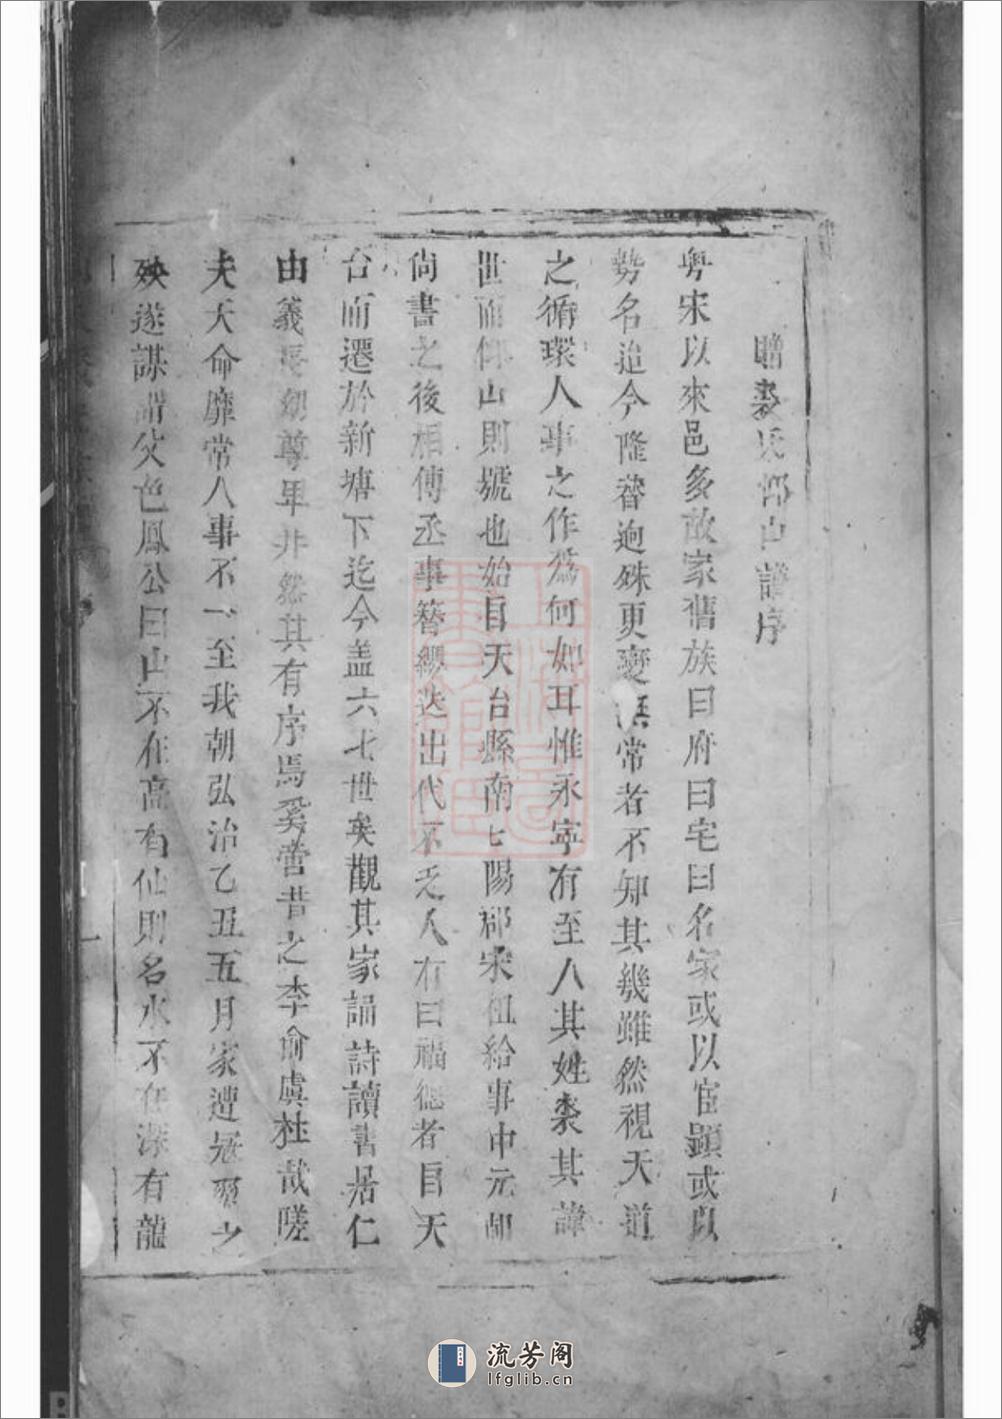 贈裘氏邨山譜序
粤宋以來邑多故家舊族曰府曰宅曰名家或以宦顕或以
勢名迨今隆替逈殊更變常者不知其幾雖然視天道
之循環人事之作爲何如耳惟永寧有至八其姓裘其諱
世而仰山則號也始自天台縣南七陽郡宋祖給事中元胡
尚書之後相傳丞事簪纓迭出代不乏人有曰福德者自天
台而遷於新塘下迄今盖六七世矣觀其家誦詩讀書居仁
由義長幼尊卑井然其有序焉奚啻昔之李俞虞杜哉嗟
夫天命靡常人事不一至我朝弘治乙丑五月家遭冦之
殃遂謀謂父邑鳳公曰山不在高有仙則名水不在深有龍
上海圖書館藏
流芳阁
lfglib.cn